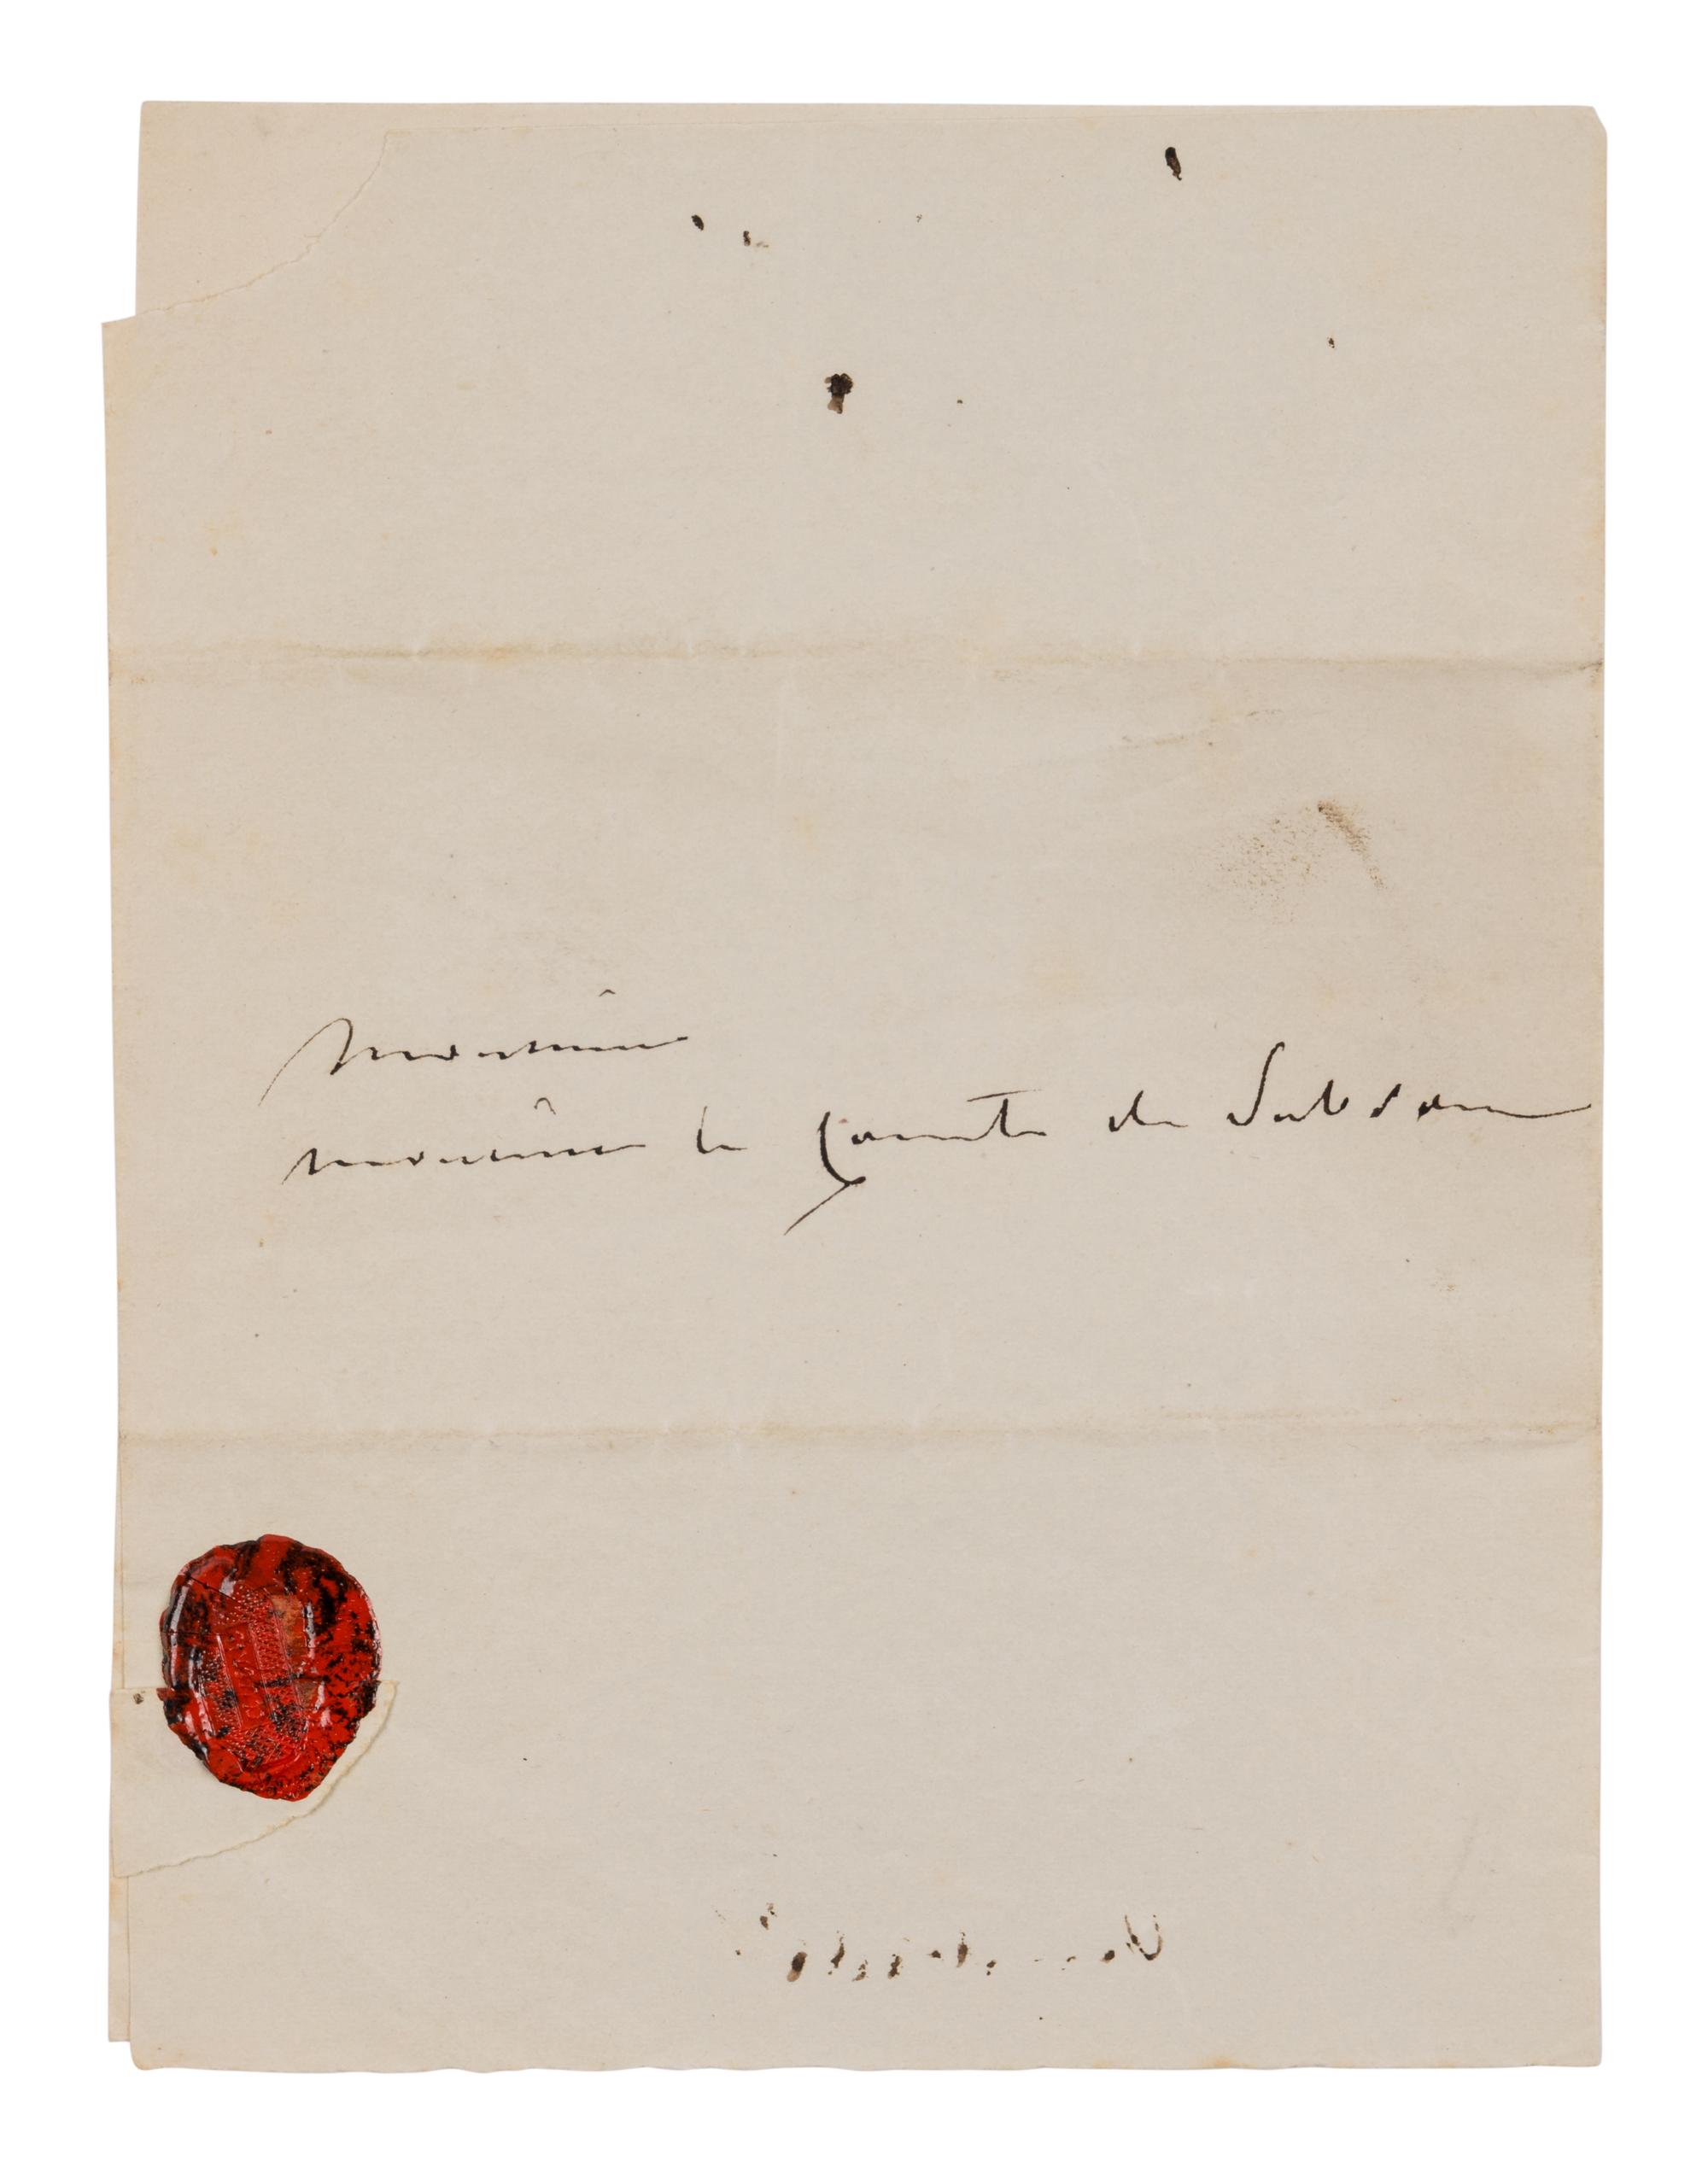 Monsieur
monsieur le Comte de Sabran